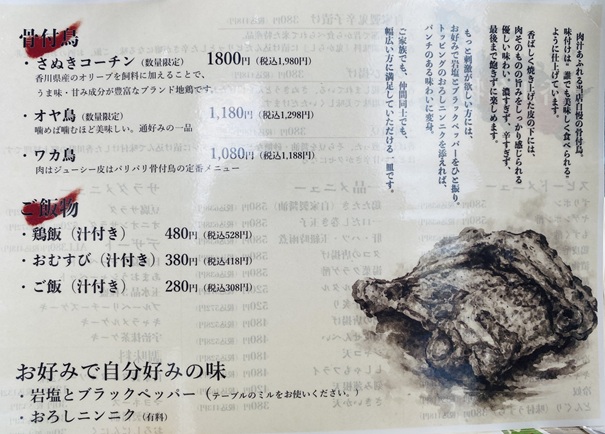 骨付鳥
・さぬきコーチン（数量限定） 1800円（税込1,980円）
香川県産のオリーブを飼料に加えることで、
うま味・甘み成分が豊富なブランド地鶏です。
・オヤ鳥（数量限定） 1,180円（税込1,298円）
噛めば噛むほど美味しい。通好みの一品
・ワカ鳥 1,080円（税込1,188円）
肉はジューシー皮はパリパリ骨付鳥の定番メニュー
ご飯物
・鶏飯（汁付き） 480円（税込528円）
・おむすび（汁付き） 380円（税込418円）
・ご飯（汁付き） 280円（税込308円）
お好みで自分好みの味
・岩塩とブラックペッパー（テーブルのミルをお使いください。）
・おろしニンニク（有料）
肉汁あふれる当店自慢の骨付鳥。
味付けは、誰でも美味しく食べられる
ように仕上げています。
香ばしく焼き上げた皮の下には、
肉そのものの旨みをしっかり感じられる
優しい味わい。濃すぎず、辛すぎず、
最後まで飽きずに楽しめます。
もっと刺激が欲しい方には、
お好みで岩塩とブラックペッパーをひと振り。
トッピングのおろしニンニクを添えれば、
パンチのある味わいに変身。
ご家族でも、仲間同士でも、
幅広い方に満足していただける一皿です。